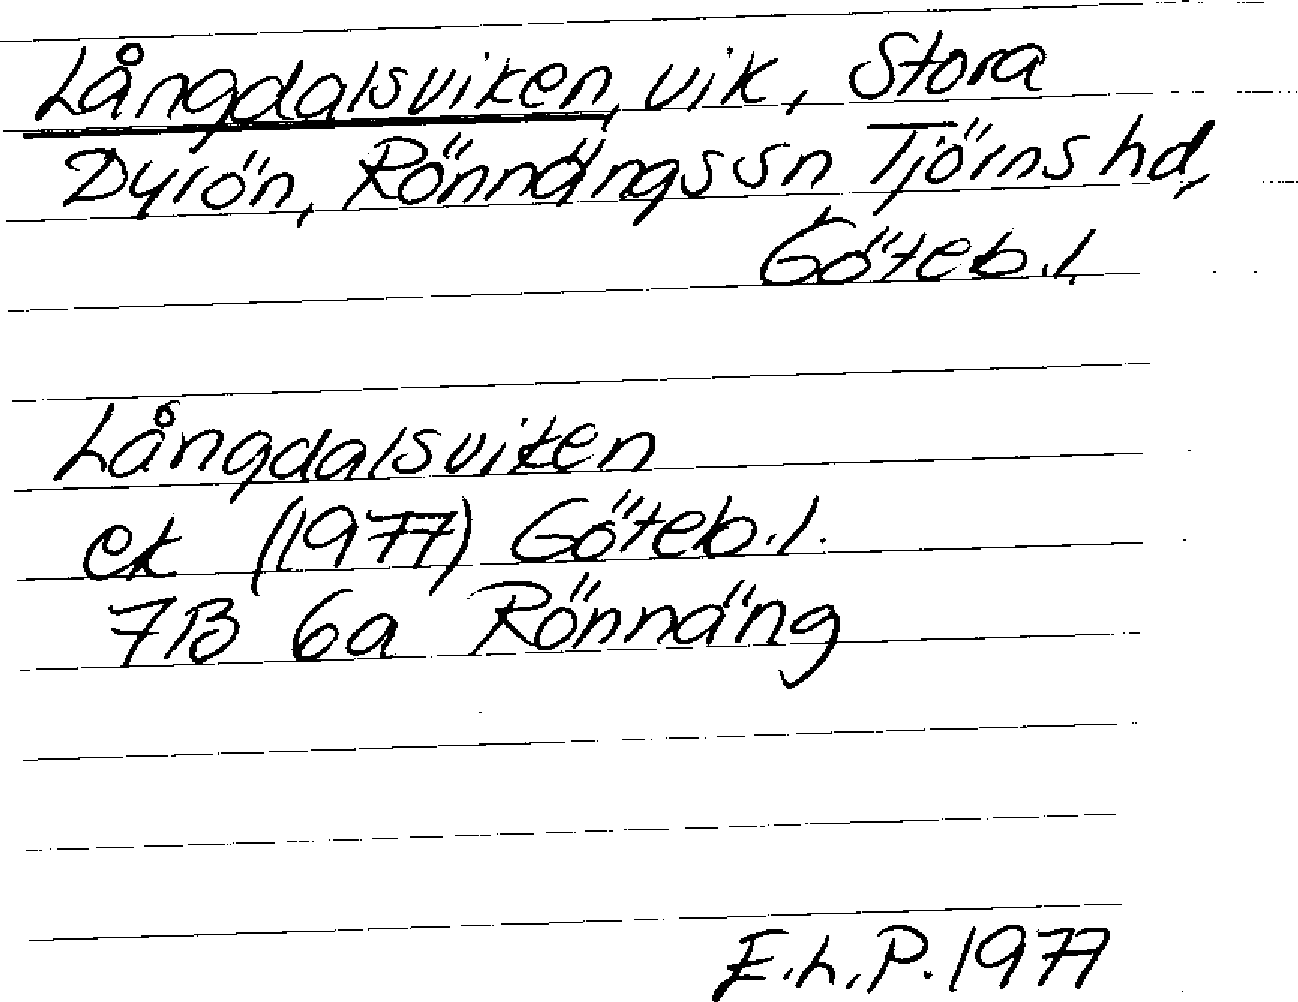 Långdalsviken, vik, Stora
Dyrön, Rönnängs sn Tjörns hd,
Göteb. l.
Långdalsviken
ek (1977) Göteb. l.
7B 6a Rönnäng
E.L.P. 1977